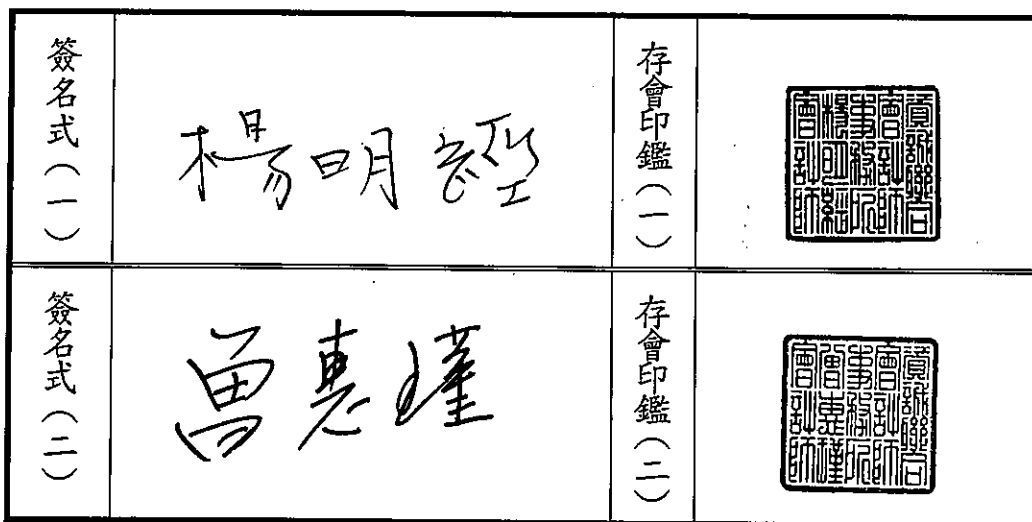 簽名式(一)
楊明經
存會印鑑(一)
資誠聯合
會計師
事務所
楊明經
會計師
簽名式(二)
曾惠瑾
存會印鑑(二)
資誠聯合
會計師
事務所
曾惠瑾
會計師